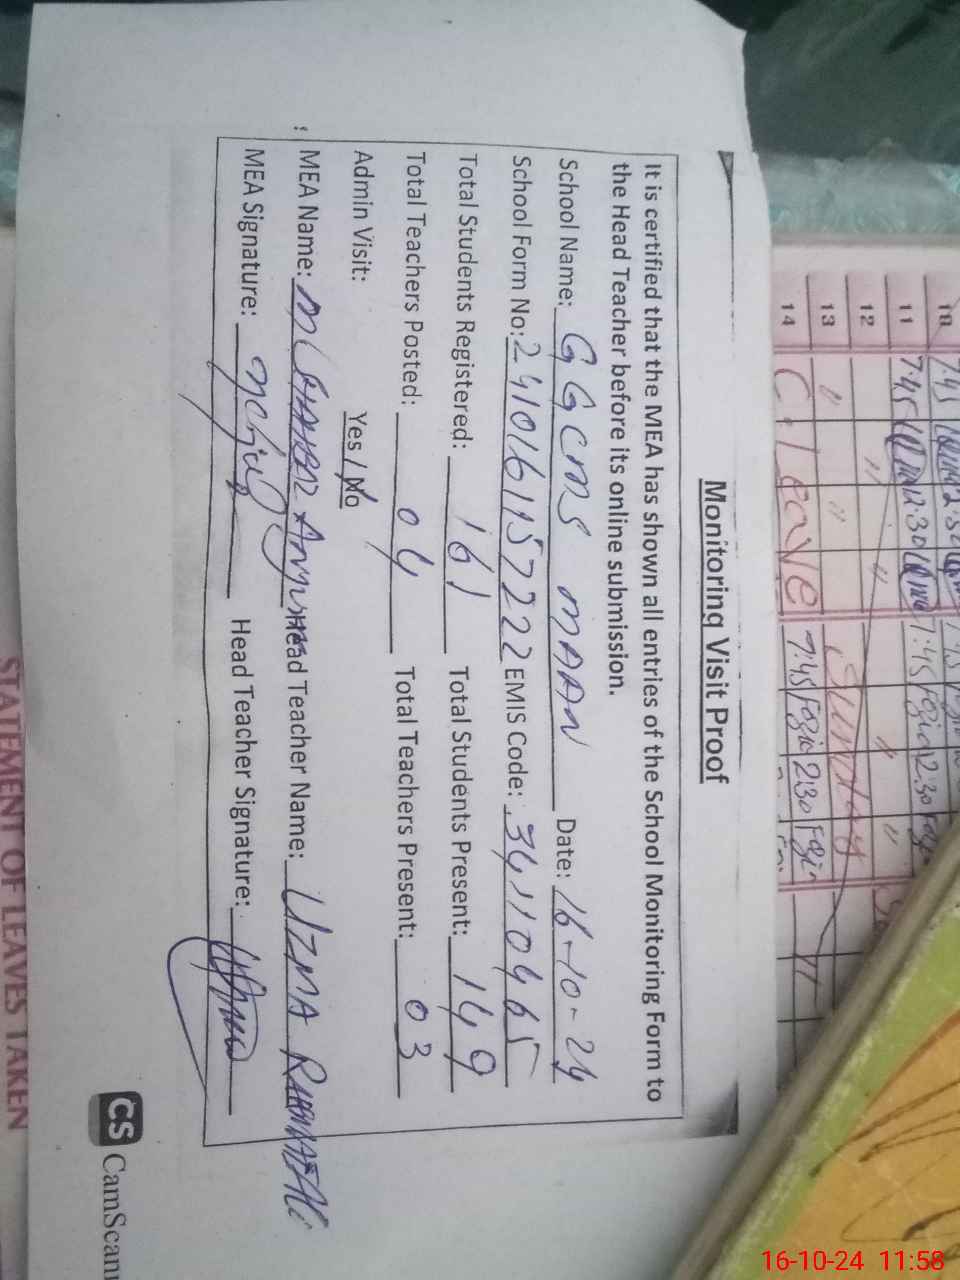 Monitoring Visit Proof
It is certified that the MEA has shown all entries of the School Monitoring Form to
the Head Teacher before its online submission.
School Name: GGCMS MAAN Date: 16-10-24
School Form No: 2410161157222 EMIS Code: 34110465
Total Students Registered: 161 Total Students Present: 149
Total Teachers Posted: 04 Total Teachers Present: 03
Admin Visit: Yes / No
MEA Name: Head Teacher Name: UZMA
MEA Signature: Head Teacher Signature:
CS CamScann
10 7:45
11 7:45 12:30 7:45 12:30
12
13 " " Sunday
14 C. Leave 7:45 2:30
STATEMENT OF LEAVES TAKEN
16-10-24 11:58